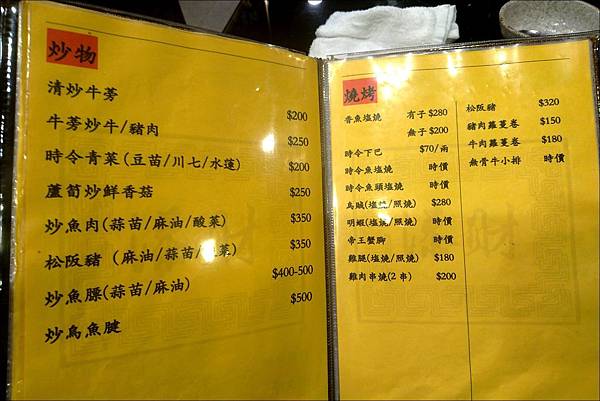 炒物
清炒牛蒡 $200
牛蒡炒牛/豬肉 $250
時令青菜(豆苗/川七/水蓮) $200
蘆筍炒鮮香菇 $250
炒魚肉(蒜苗/麻油/酸菜) $350
松阪豬 (麻油/蒜苗/菜) $350
炒魚膘(蒜苗/麻油) $400-500
炒烏魚腱 $500
燒烤
香魚塩燒 有子 $280
無子 $200
時令下巴 $70/兩
時令魚塩燒 時價
時令魚頭塩燒 時價
烏賊(塩燒/照燒) $280
明蝦(塩燒/照燒) 時價
帝王蟹腳 時價
雞腿(塩燒/照燒) $180
雞肉串燒(2 串) $200
松阪豬 $320
豬肉蘿蔓卷 $150
牛肉蘿蔓卷 $180
無骨牛小排 時價